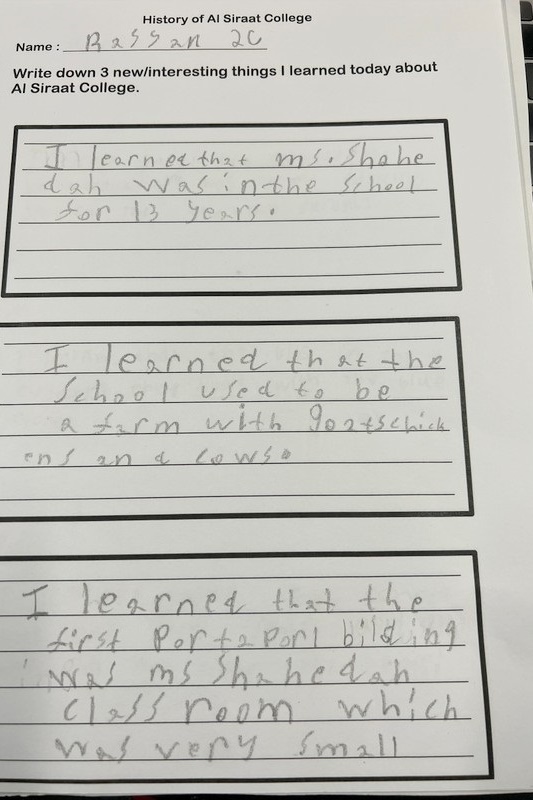 History of Al Siraat College
Name : Bassan 2C
Write down 3 new/interesting things I learned today about
Al Siraat College.
I learned that ms. Shahe
dah was in the School
for 13 years.
I learned that the
School used to be
a farm with goatschick
ens and cows.
I learned that the
first Portaporl bilding
was ms Shahedah
Classroom which
was very small